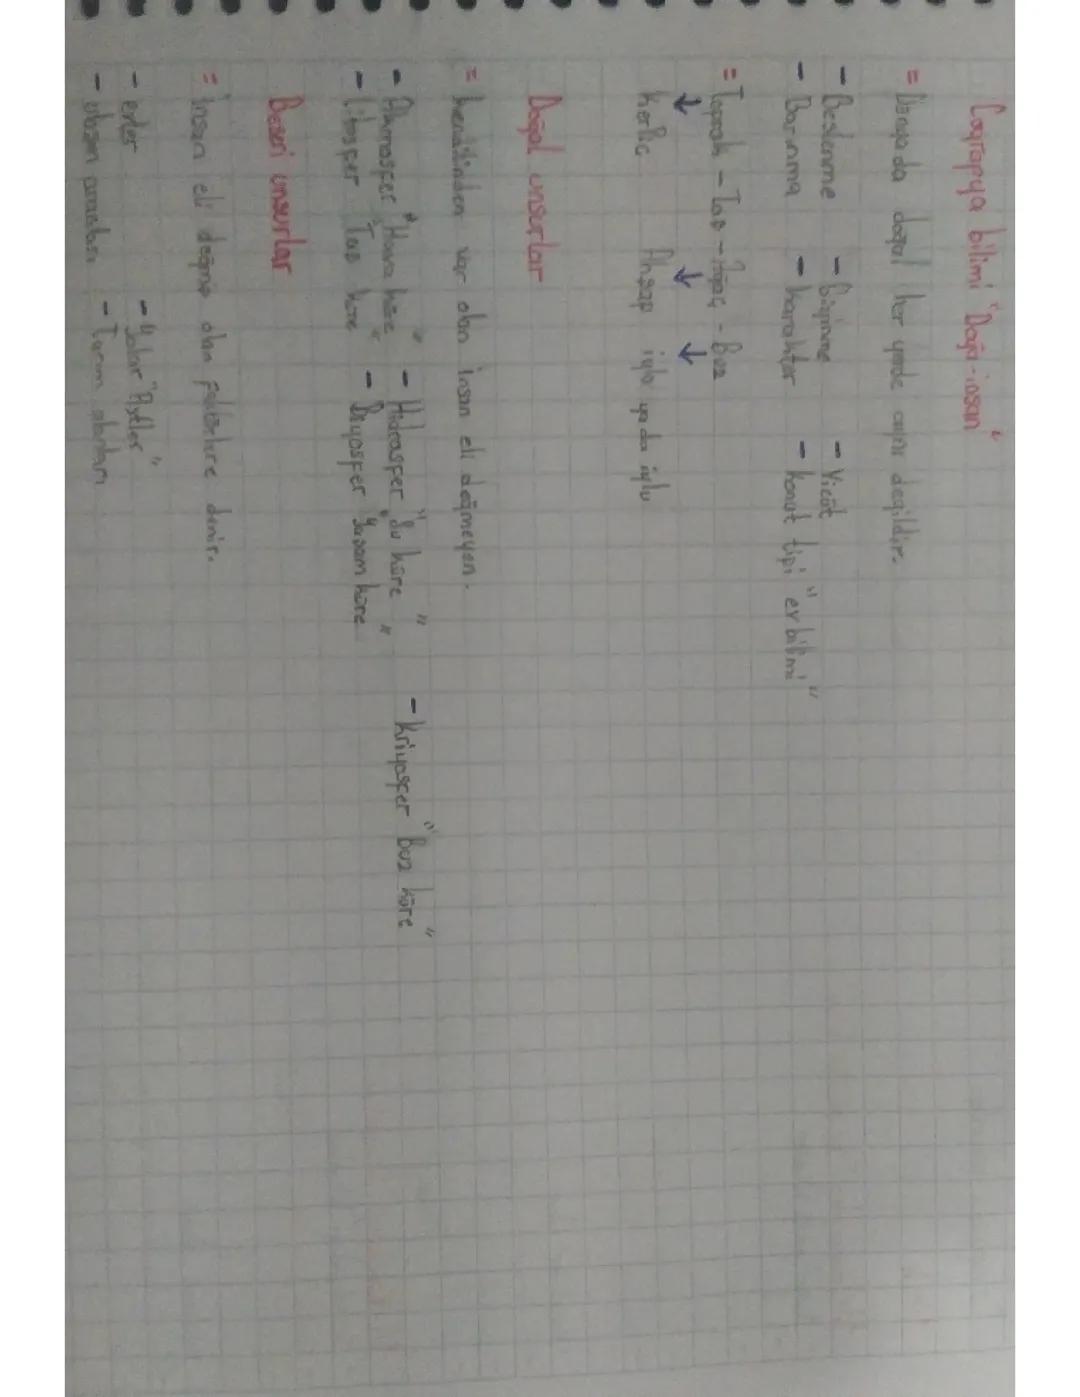 Cografya bilimi "Doğa-insan"
= Dünyada doğal her yerde aynı degildir.
- Beslenme - Giyinme - Vicüt
- Barınma - karakter - konut tipi "ev bilimi"
= Toprak - Taş - Ağaç - Buz
↓ ↓ ↓
Kerpiç Ahşap iglo ya da iglu
Doğal unsurlar
= kendiğinden var olan insan eli değmeyen.
- Atmosfer "Hava küre" - Hidrosfer "Su küre" - Kriyosfer "Buz küre"
- Litosfer "Taş küre" - Biyosfer "Yaşam küre"
Beseri unsurlar
= insan eli değmiş olan faktörlere denir.
- evler - Yollar
- ulaşım - Tarım alanları